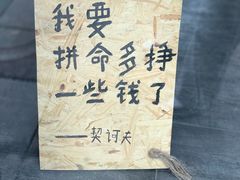 我要
拼命多挣
一些钱了
——契诃夫